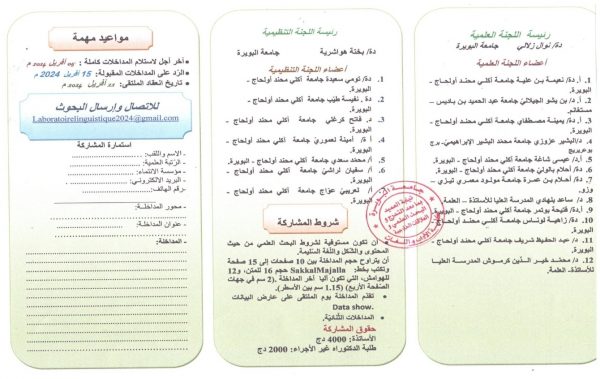 رئيسة اللجنة العلمية
دة/ نوال زلالي جامعة البويرة
أعضاء اللجنة العلمية
1. أ.دة/ نعيمة بن علية جامعة أكلي محند أولحاج -
البويرة.
2. أ.د/ بن يشو الجيلالي جامعة عبد الحميد بن باديس -
مستغانم.
3. أ.دة/ يمينة مصطفاي جامعة أكلي محند أولحاج -
البويرة.
4. د/البشير عزوزي جامعة محمد البشير الإبراهيمي- برج
بوعريريج.
5. أ.د/ عيسى شاغة جامعة أكلي محند أولحاج - البويرة.
6. دة/ أحلام بالولي جامعة أكلي محند أولحاج - البويرة.
7. دة/ أحلام بن عمرة جامعة مولود معمري تيزي -
وزو.
8. د/ ساعد بلهادي المدرسة العليا للأساتذة - العلمة.
9. دة/ فتيحة بوتمر جامعة أكلي محند أولحاج - البويرة.
10. دة/ راهية لوناس جامعة أكلي محند أولحاج - البويرة.
11. د/ عبد الحفيظ شريف جامعة أكلي محند أولحاج -
البويرة.
12. د/ محمد خير الدين كرموش المدرسة العليا
للأساتذة- العلمة.
رئيسة اللجنة التنظيمية
دة/ بختة هواشرية جامعة البويرة
أعضاء اللجنة التنظيمية
1. دة/ تومي سعيدة جامعة أكلي محند أولحاج -
البويرة.
2. دة/ نفيسة طيب جامعة أكلي محند أولحاج -
البويرة.
3. د/ فاتح كرغلي جامعة أكلي محند أولحاج -
البويرة.
4. أ ة/ أمينة لعموري جامعة أكلي محند أولحاج -
البويرة.
5. أ/ محمد سعدي جامعة أكلي محند أولحاج - البويرة.
6. أ/ سفيان لراشي جامعة أكلي محند أولحاج -
البويرة.
7. أ/ لعريبي عواج جامعة أكلي محند أولحاج -
البويرة.
شروط المشاركة
أن تكون مستوفية لشروط البحث العلمي من حيث
المحتوى والشكل واللغة السليمة.
أن يتراوح حجم المداخلة بين 10 صفحات إلى 15 صفحة
وتكتب بخط: SakkalMajalla حجم 16 للمتن، و12
للهوامش، التي تكون آليا آخر المداخلة. (2 سم في جهات
الصفحة الأربع) (1.15 سم بين الأسطر).
تقدم المداخلة يوم الملتقى على عارض البيانات
Data show.
المداخلات الثنائية.
حقوق المشاركة
الأساتذة: 4000 دج
طلبة الدكتوراه غير الأجراء: 2000 دج
مواعيد مهمة
آخر أجل لاستلام المداخلات كاملة : 05 أفريل 2024 م
الرد على المداخلات المقبولة: 15 أفريل 2024 م
تاريخ انعقاد الملتقى: أفريل 2024 م
للاتصال وإرسال البحوث
Laboratoirelinguistique2024@gmail.com
استمارة المشاركة
- الاسم واللقب:
- الرتبة العلمية:
- مؤسسة الانتماء:
- البريد الالكتروني:
- رقم الهاتف:
- محور المداخلة:
- عنوان المداخلة:
- المداخلة:
جامعة البويرة